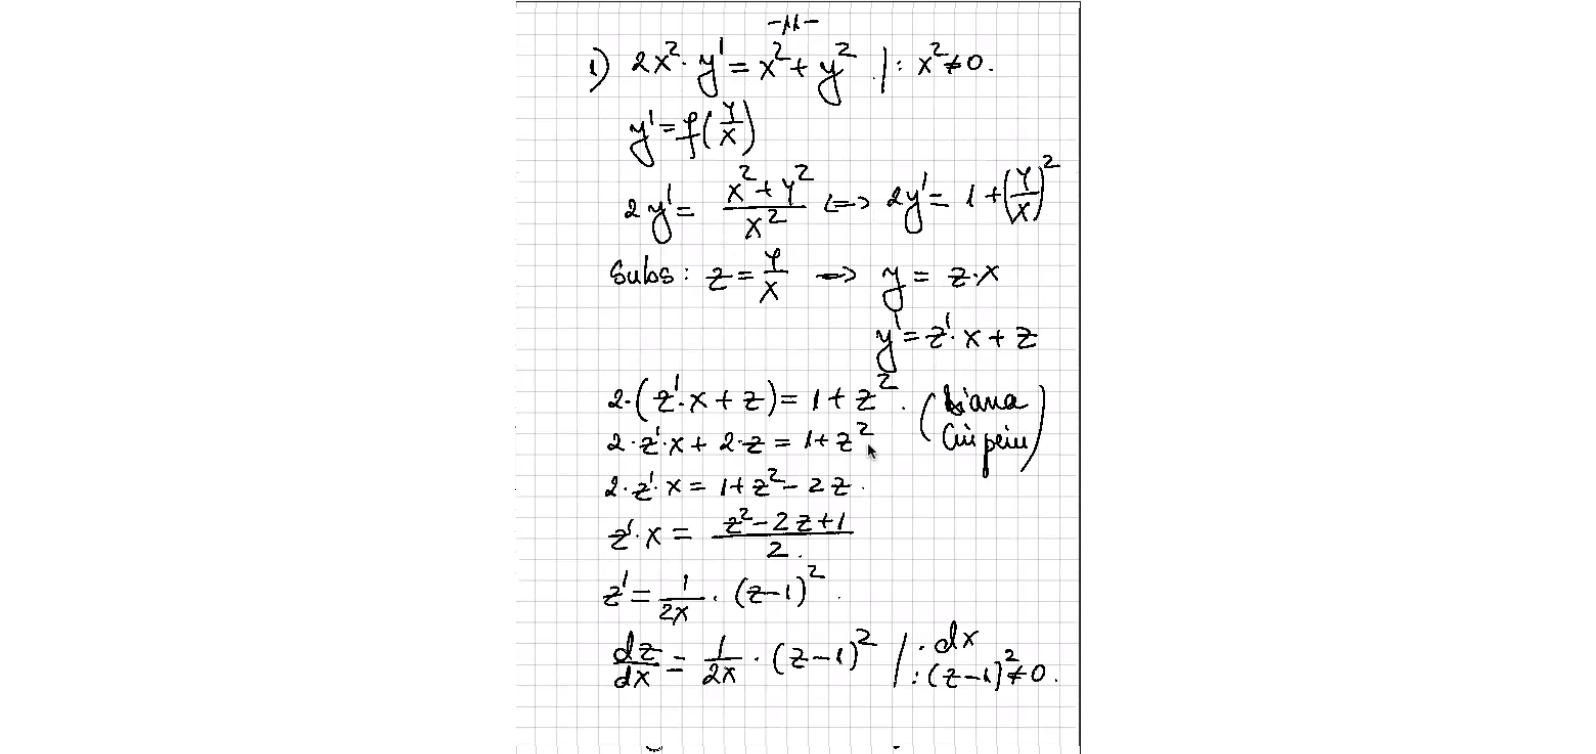 -11-
1) 2x²· y' = x² + y² . | : x² ≠ 0.
y' = f(y/x)
2y' = (x² + y²)/x² <=> 2y' = 1 + (y/x)²
Subs: z = y/x => y = z·x
y' = z'·x + z
2·(z'·x + z) = 1 + z². (Diana
2·z'·x + 2·z = 1 + z²
2·z'·x = 1 + z² - 2z.
z'·x = (z² - 2z + 1)/2.
z' = 1/2x · (z-1)².
dz/dx = 1/2x · (z-1)² | · dx
: (z-1)² ≠ 0.